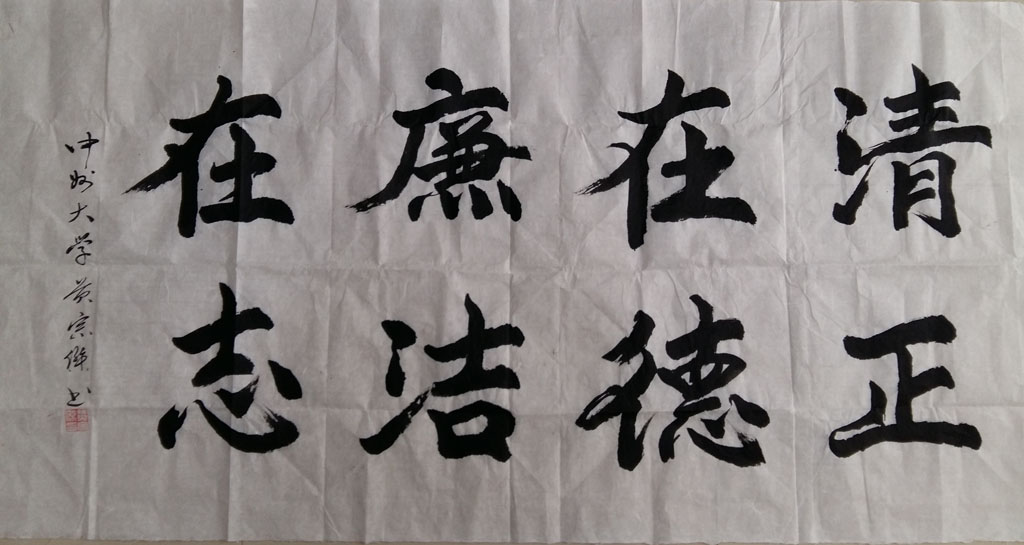 清正
在德
廉洁
在志
中州大学黄宗杰书